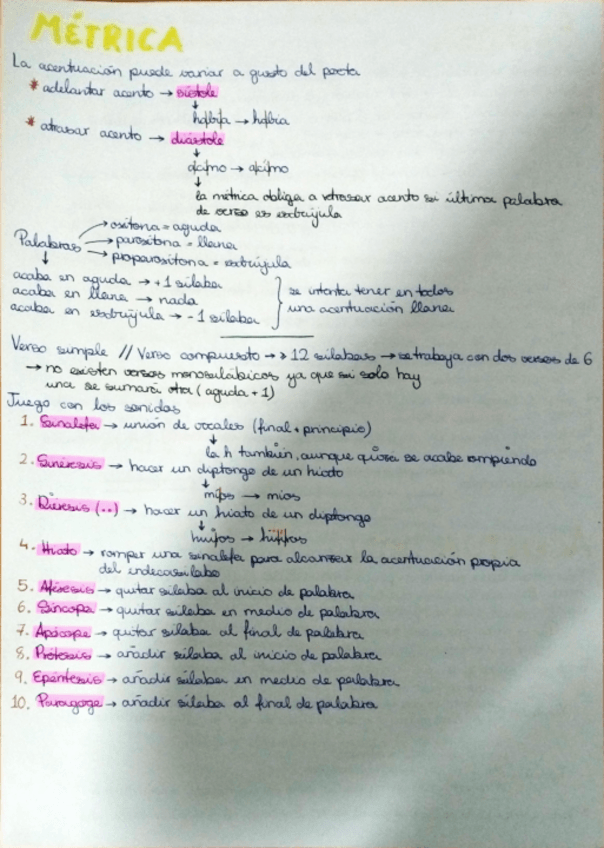 MÉTRICA
La acentuación puede variar a gusto del poeta
* adelantar acento → sístole
↓
había → habia
* atrasar acento → diástole
↓
↓
la métrica obliga a retrasar acento si última palabra
de verso es esdrújula
Palabras → oxítona = aguda
→ paroxítona = llana
→ proparoxitona = esdrújula
↓
acaba en aguda → +1 sílaba
acaba en llana → nada
acaba en esdrújula → -1 sílaba
se intenta tener en todos
una acentuación llana
Verso simple // Verso compuesto → > 12 sílabas → se trabaja con dos versos de 6
→ no existen versos monosilábicos ya que si solo hay
una se sumará otra (aguda + 1)
Juego con los sonidos
1. Sinalefa → unión de vocales (final + principio)
↓
la h también, aunque quizá se acabe rompiendo
2. Sinéresis → hacer un diptongo de un hiato
↓
míos → mios
3. Diéresis (··) → hacer un hiato de un diptongo
↓
4. Hiato → romper una sinalefa para alcanzar la acentuación propia
del endecasílabo
5. Aféresis → quitar sílaba al inicio de palabra
6. Síncopa → quitar sílaba en medio de palabra
7. Apócope → quitar sílaba al final de palabra
8. Prótesis → añadir sílaba al inicio de palabra
9. Epéntesis → añadir sílaba en medio de palabra
10. Paragoge → añadir sílaba al final de palabra